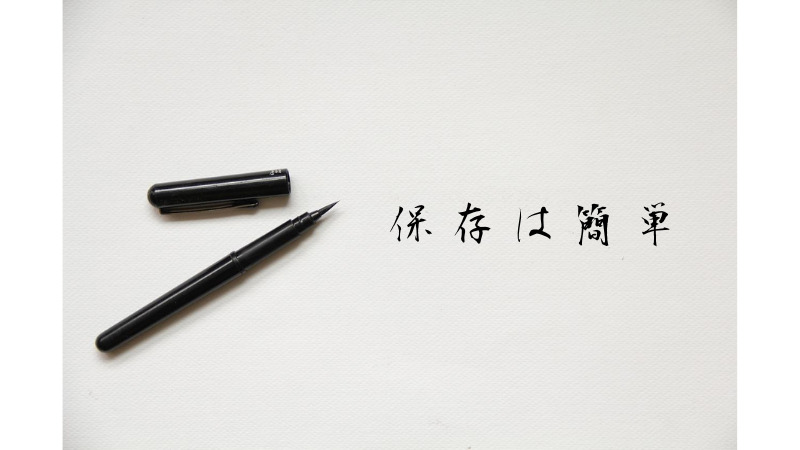 保存は簡単